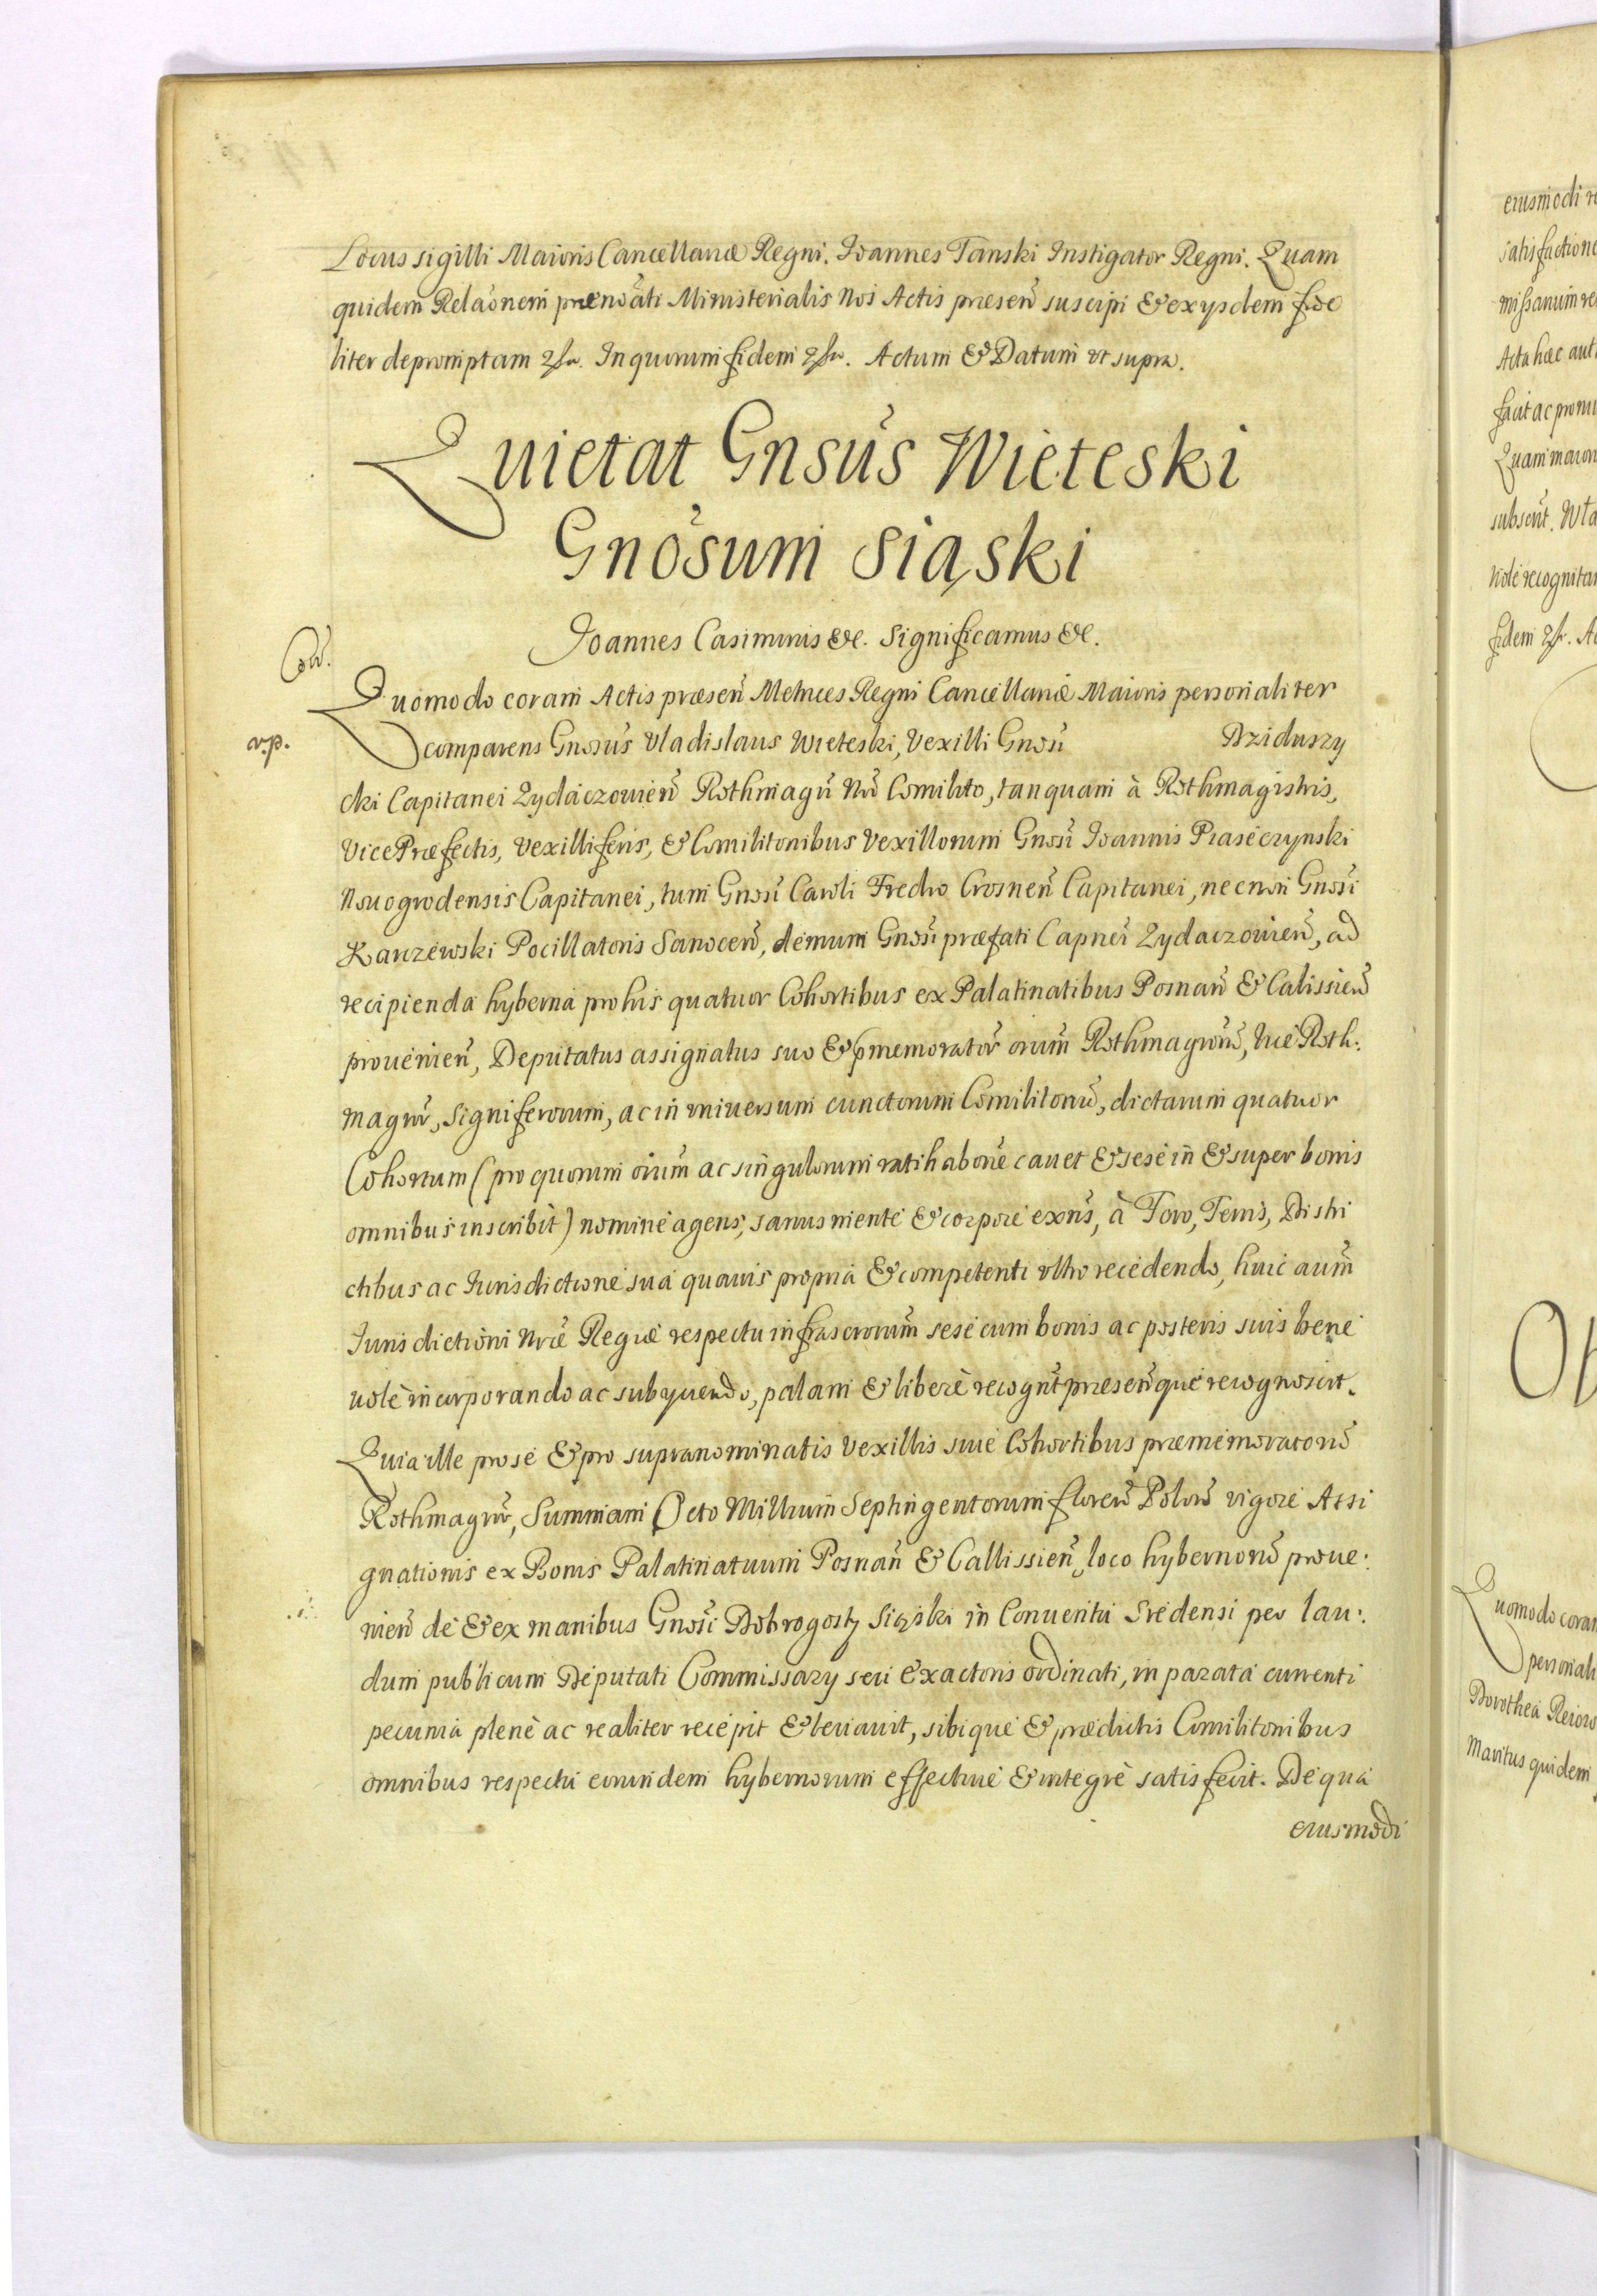 Locus sigilli Maioris Cancellariæ Regni. Ioannes Tanski Instigator Regni. Quam
quidem Relaõnem prænoãti Ministerialis Nos Actis præseñ suscipi & exysdem fide
liter depromptam &sr. In quorum fidem &sr. Actum & Datum vt supra.
Quietat Gnsũs Wieteski
Gnõsum Siąski
Joannes Casimirus &c. Significamus &c.
Con.
Quomodo coram Actis præseñ Metrices Regni Cancellariæ Maioris personaliter
v.p.
comparens Gnosũs Vladislaus Wieteski, Vexilli Gnosĩ Dziduszy
cki Capitanei Zydaczowieñ Rothmagrĩ Nrĩ Comilito, tanquam à Rothmagistris,
Vice Præfectis, Vexilliferis, & Comilitonibus Vexillorum Gnosĩ Ioannis Piaseczynski
Nouogrodensis Capitanei, tum Gnosĩ Caroli Fredro Crosneñ Capitanei, necnon Gnosĩ
Karczewski Pocillatoris Sanoceñ, demum Gnosĩ præfati Capneĩ Zydaczowieñ, ad
recipienda hyberna pro his quatuor Cohortibus ex Palatinatibus Posnañ & Calissieñ
prouenieñ, Deputatus assignatus suo & pmemorator̃ oium̃ Rothmagror̃, Vice Roth:
magror̃, Signiferorum, ac in vniuersum cunctorum Comilitonũ, dictarum quatuor
Cohortum (pro quorum oium̃ ac singulorum ratihabone cauet & sese in & super bonis
omnibus inscribit) nomine agens, sanus mente & corpore exñs, à Foro, Terris, Distri
ctibus ac Iurisdictione sua quauis propria & competenti vltro recedendo, huic aum̃
Iurisdictioni Nræ Regiæ respectu infrascrorum̃ sese cum bonis ac posteris suis bene
uole incorporando ac subyciendo, palam & libere recognt̃ præseñque recognoscit.
Quia ille pro se & pro supranominatis Vexillis siue Cohortibus præmemoratorũ
Rothmagror̃, Summam Octo Millium Septingentorum floreñ Polor̃ vigore Assi
gnationis ex Bonis Palatinatuum Posnañ & Callissieñ, loco hybernorũ proue:
nieñ de & ex manibus Gnosĩ Dobrogosty Siąski in Conuentu Sredensi per lau:
dum publicum Deputati Commissary seu Exactoris ordinati, in parata currenti
pecunia plene ac realiter recepit & leuauit, sibique & prædictis Comilitonibus
omnibus respectu eorundem hybernorum effectiue & integre satisfecit. De qua
eiusmodi